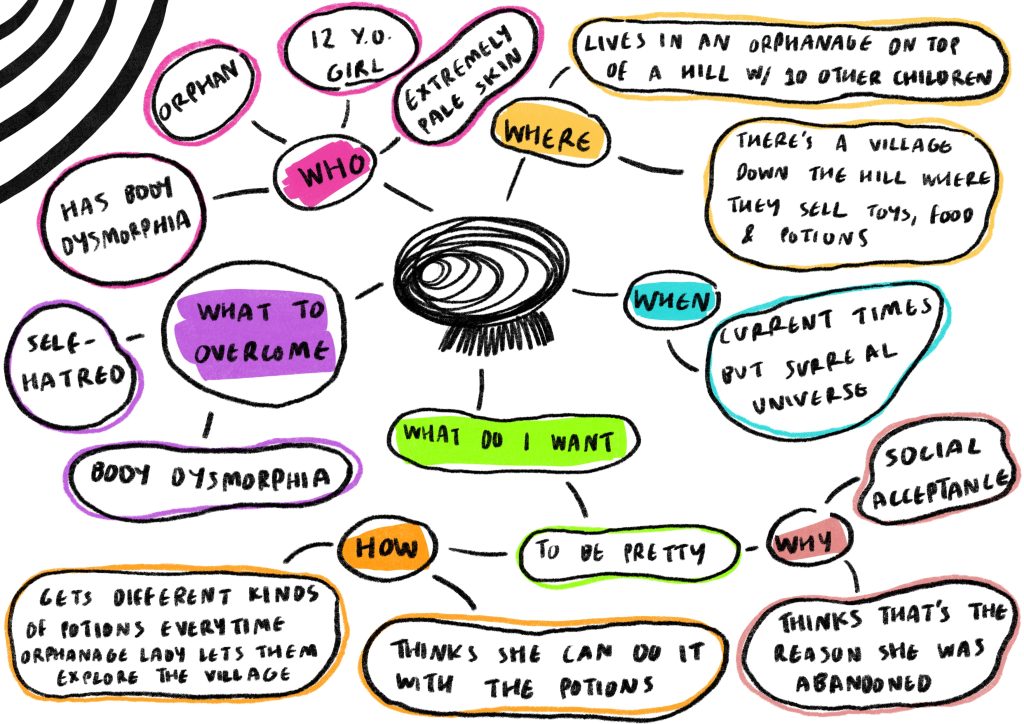 12 Y.O.
GIRL
ORPHAN
EXTREMELY
PALE SKIN
WHO
HAS BODY
DYSMORPHIA
WHERE
LIVES IN AN ORPHANAGE ON TOP
OF A HILL W/ 10 OTHER CHILDREN
THERE'S A VILLAGE
DOWN THE HILL WHERE
THEY SELL TOYS, FOOD
& POTIONS
WHEN
CURRENT TIMES
BUT SURREAL
UNIVERSE
WHAT TO
OVERCOME
SELF-
HATRED
BODY DYSMORPHIA
WHAT DO I WANT
TO BE PRETTY
WHY
SOCIAL
ACCEPTANCE
THINKS THAT'S THE
REASON SHE WAS
ABANDONED
HOW
GETS DIFFERENT KINDS
OF POTIONS EVERYTIME
ORPHANAGE LADY LETS THEM
EXPLORE THE VILLAGE
THINKS SHE CAN DO IT
WITH THE POTIONS